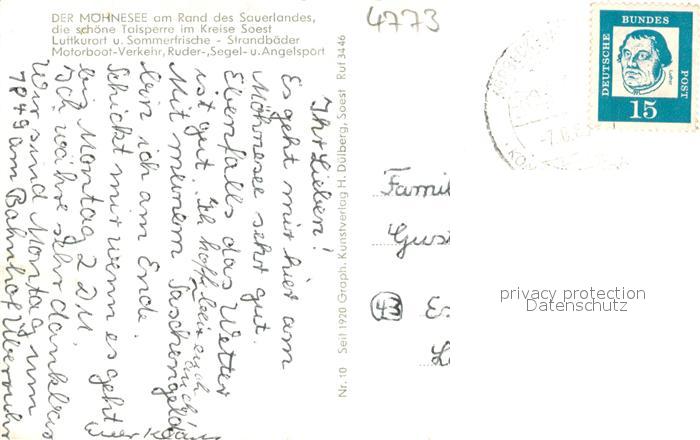 DER MÖHNESEE am Rand des Sauerlandes,
die schöne Talsperre im Kreise Soest
Luftkurort u. Sommerfrische - Strandbäder
Motorboot-Verkehr, Ruder-, Segel- u. Angelsport
4773
DEUTSCHE BUNDES POST
Luther
15
Ihr Lieben!
Es geht mir hier am
Möhnesee sehr gut.
Ebenfalls das Wetter
ist gut. Ich hoffe bei euch auch
Mit meinem Taschengeld
bin ich am Ende.
Schickt mir wenn es geht
bis Montag 2 DM.
Ich währe sehr dankbar
Wir sind Montag um
1849 am Bahnhof Überruhr
euer Klaus
Nr. 10 Seit 1920 Graph. Kunstverlag H. Dülberg, Soest Ruf 3446
Famil
Gust
43 Es
privacy protection
Datenschutz